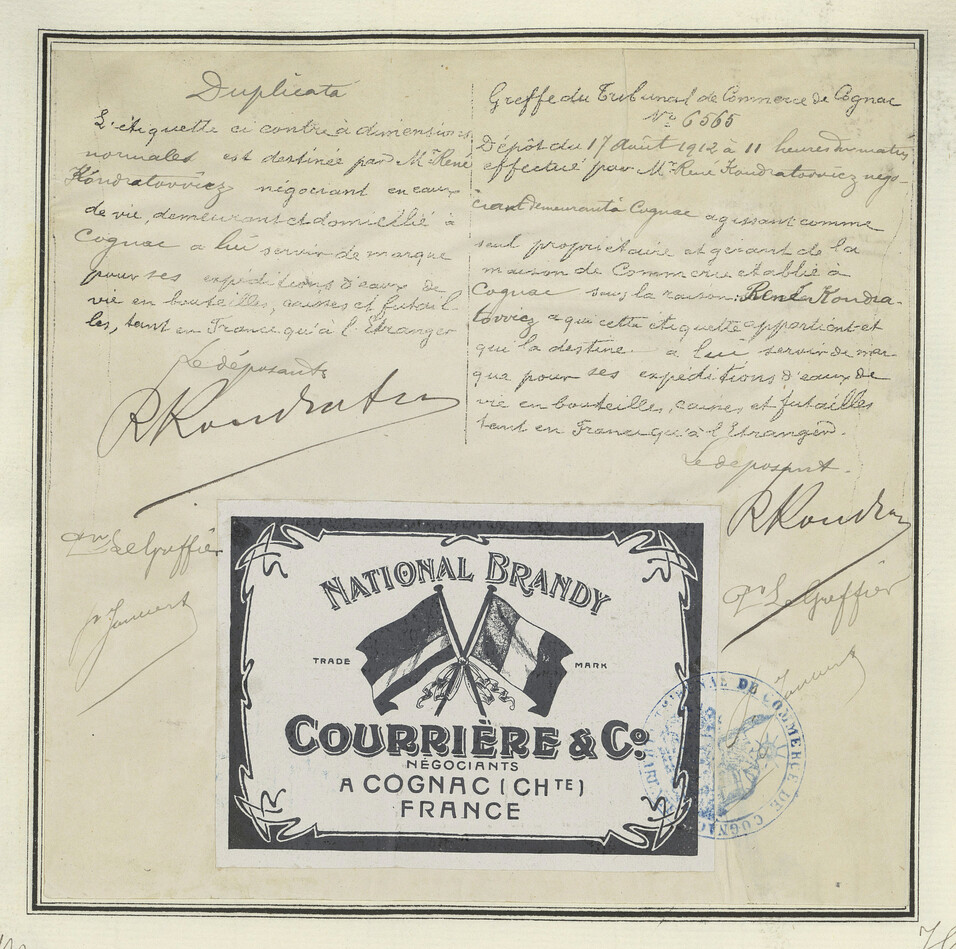 Duplicata
L'étiquette ci contre à dimensions
normales est destinée par Mr René
Kondratovviez négociant en eaux
de vie, demeurant et domicilié à
Cognac a lui servir de marque
pour ses expéditions d'eaux de
vie en bouteilles, caisses et futail-
les, tant en France qu'à l'Étranger
Le déposant
R Kondratov
pr Le Greffier
Greffe du Tribunal de Commerce de Cognac
No 6565
Dépôt du 17 Août 1912 à 11 heures du matin
effectué par Mr René Kondratovviez négo-
ciant demeurant à Cognac agissant comme
seul propriétaire et gérant de la
maison de Commerce établie à
Cognac sous la raison: René Kondra-
tovviez a qui cette étiquette appartient et
qui la destine a lui servir de mar-
que pour ses expéditions d'eaux de
vie en bouteilles, caisses et futailles
tant en France qu'à l'Etranger.
Le déposant.
R Kondra
pr Le Greffier
NATIONAL BRANDY
TRADE MARK
COURRIÈRE & Co.
NÉGOCIANTS
A COGNAC (CHTE)
FRANCE
TRIBUNAL DE COMMERCE DE COGNAC